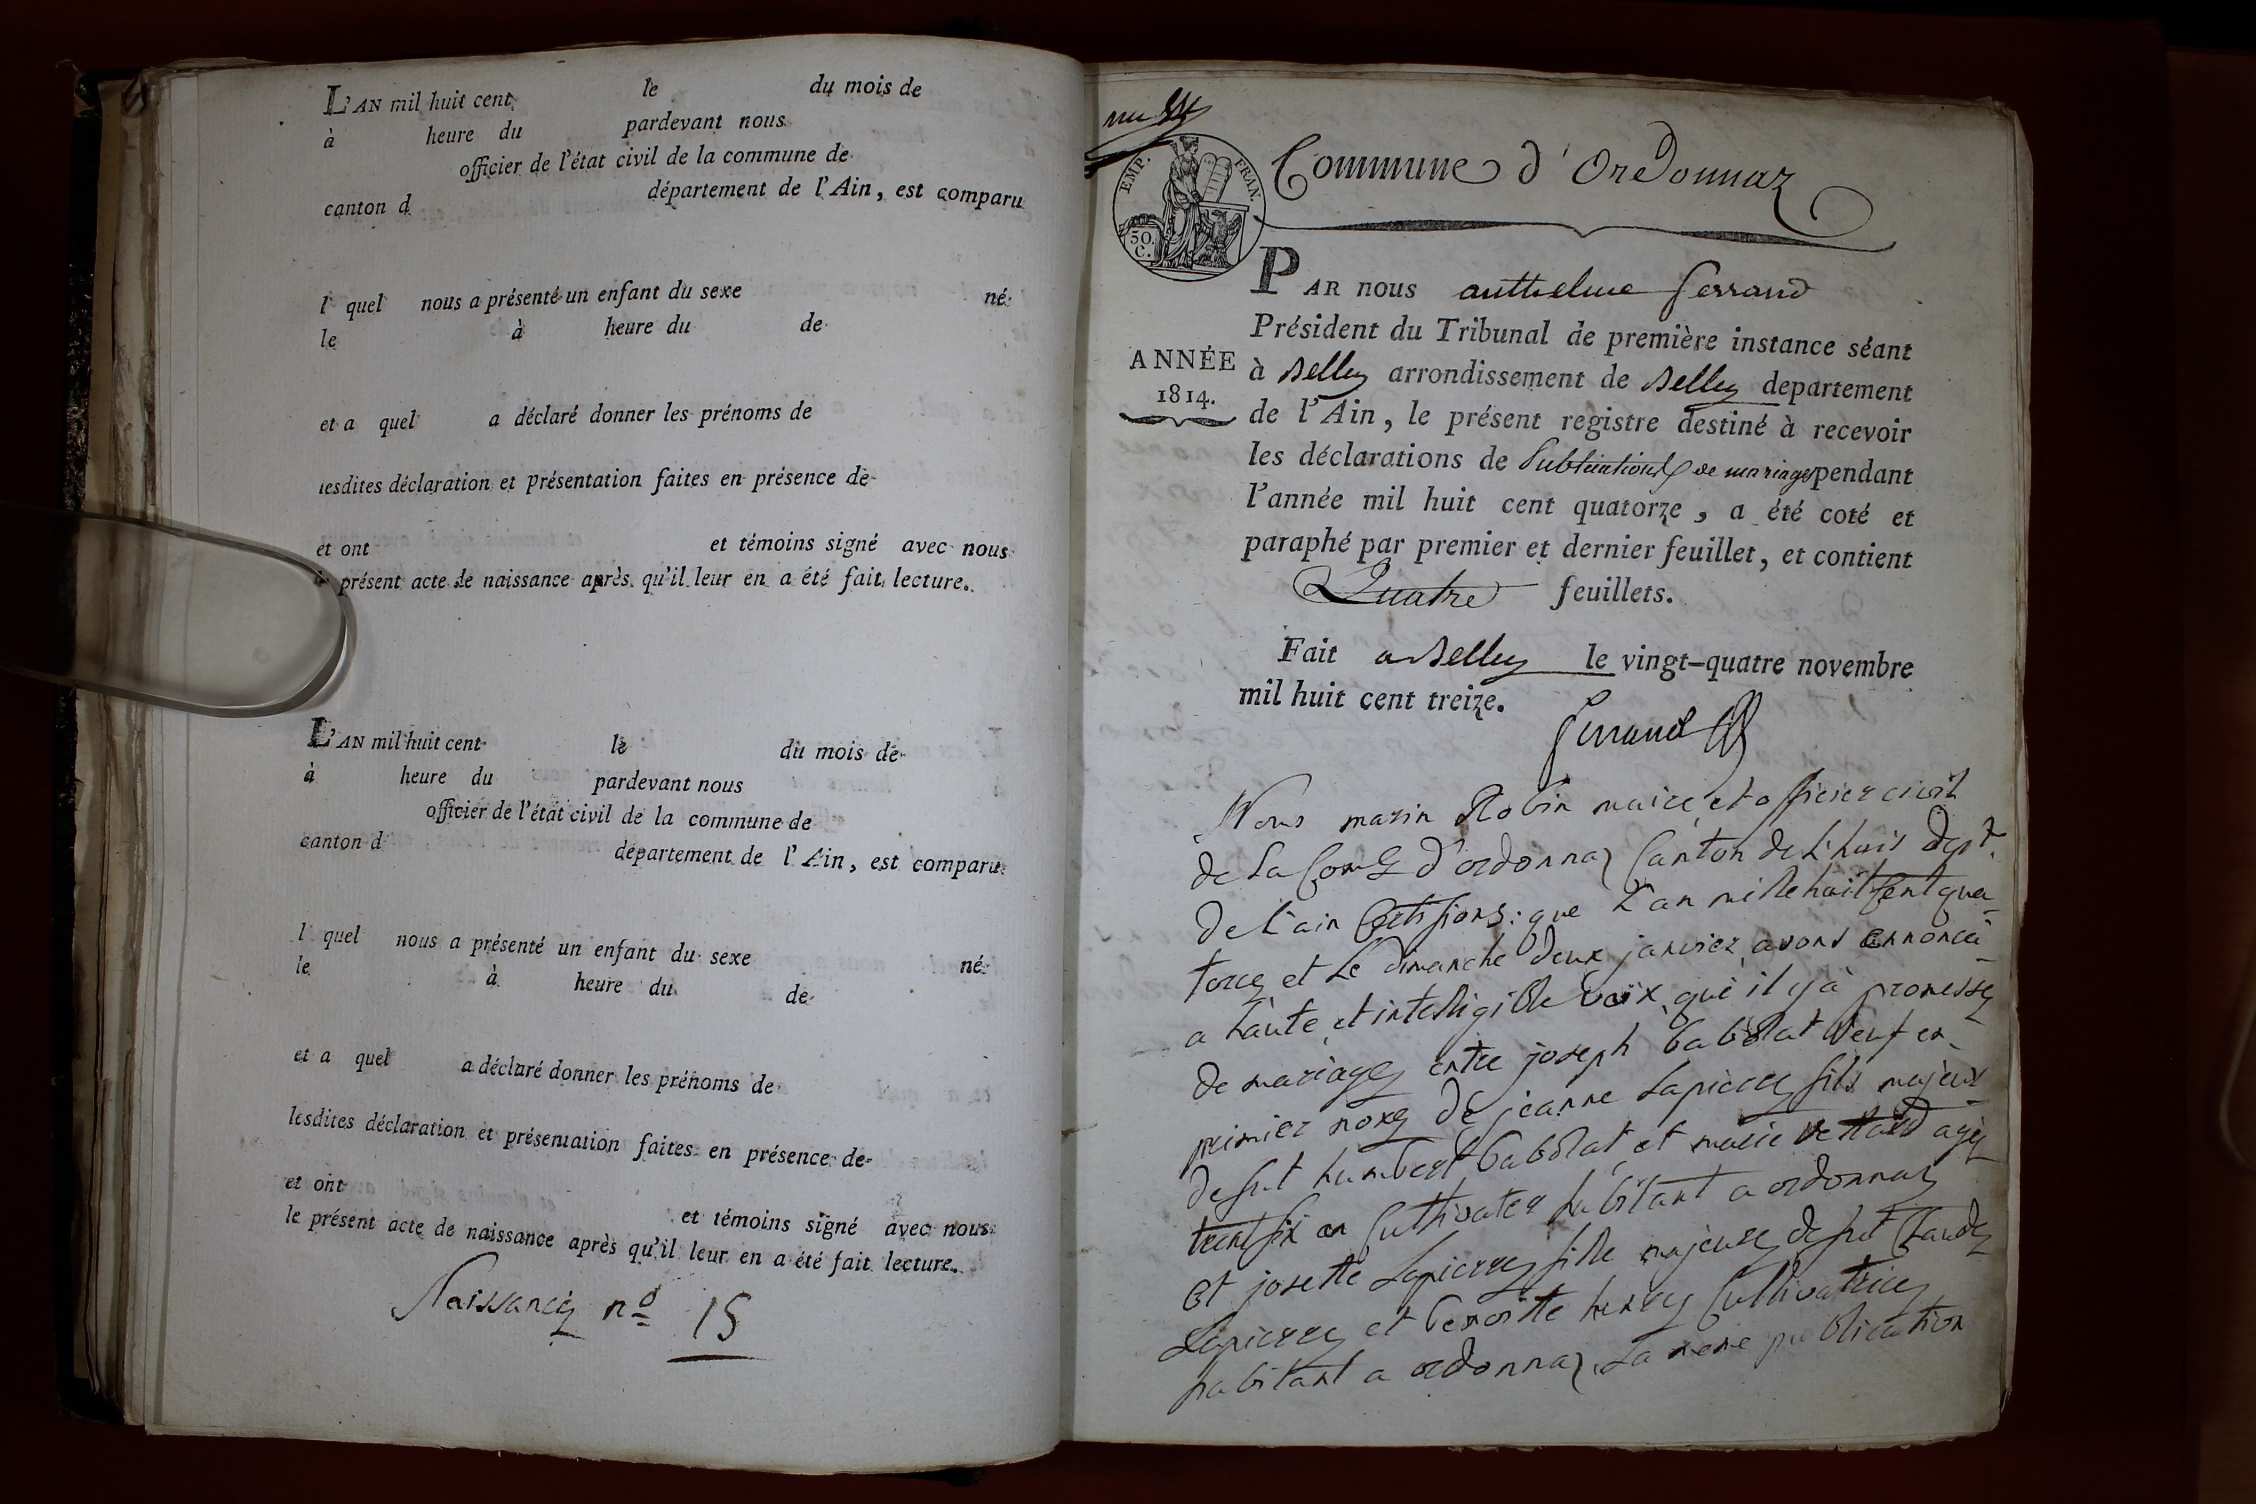 L'AN mil huit cent le du mois de
à heure du pardevant nous
officier de l'état civil de la commune de
canton d département de l'Ain, est comparu
l quel nous a présenté un enfant du sexe né
le à heure du de
et a quel a déclaré donner les prénoms de
lesdites déclaration et présentation faites en présence de
et ont et témoins signé avec nous
le présent acte de naissance après qu'il leur en a été fait lecture.
L'AN mil huit cent le du mois de
à heure du pardevant nous
officier de l'état civil de la commune de
canton d département de l'Ain, est comparu
l quel nous a présenté un enfant du sexe né
le à heure du de
et a quel a déclaré donner les prénoms de
lesdites déclaration et présentation faites en présence de
et ont et témoins signé avec nous
le présent acte de naissance après qu'il leur en a été fait lecture.
Naissance nº 15
EMP. FRAN.
50. C.
Commune d'Ordonnaz
PAR nous anthelme ferrand
Président du Tribunal de première instance séant
ANNÉE
1814.
à Belley arrondissement de Belley departement
de l'Ain, le présent registre destiné à recevoir
les déclarations de Publications de mariages pendant
l'année mil huit cent quatorze, a été coté et
paraphé par premier et dernier feuillet, et contient
Quatre feuillets.
Fait a Belley le vingt-quatre novembre
mil huit cent treize.
ferrand
Nous marin Robin maire et officier civil
de la Com d'ordonnaz Canton de Lhuis Dept
de L'ain Certifions: que L'an mille huit Cent qua-
torze et Le dimanche deux janvier avons annoncé
a haute et intelligible voix que il y à promesse
de mariage entre joseph babolat veuf en
premier noxe de jeanne Lapierre fils majeur
de fut humbert babolat et marie age
trent six an Cultivater habitant a ordonnaz
et josette Lapierre fille majeure de fut Claude
Lapierre et benoitte henry Cultivatrice
habitant a ordonnaz La meme publication